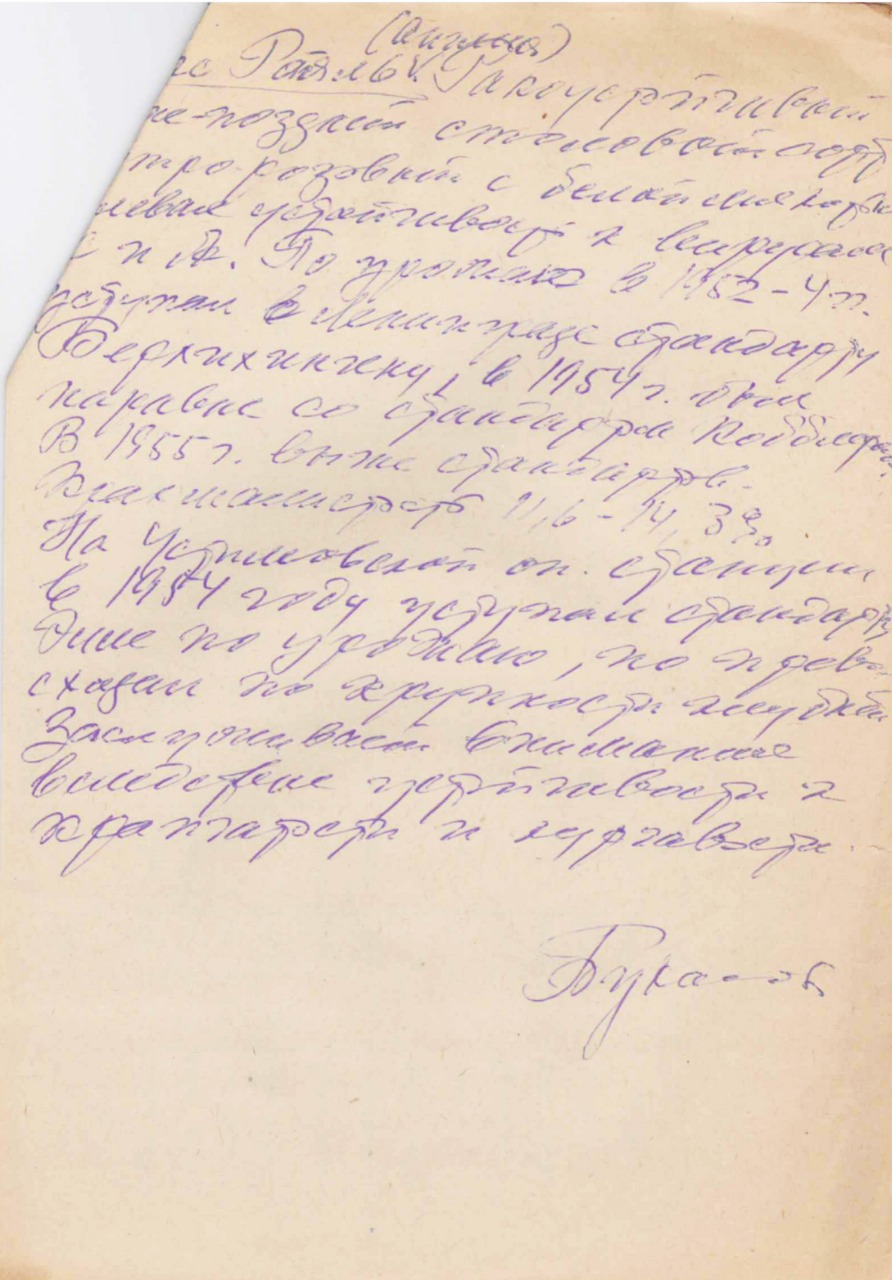 (Англия)
Роял". Ракоустойчивый
не-поздний столовый сорт
розовый с белой мякотью
левая устойчивость к вирусам
и А. По урожаю в 1952-4 гг.
уступал в Ленинграде стандарту
Берлихинкену, в 1954 г. был
наравне со стандартом Кобблер.
В 1955 г. выше стандартов.
Крахмалистость 11,6 - 14,3%.
На Устимовской оп. станции
в 1954 году уступал стандарту
по урожаю, но прево-
сходил по крупности клубней
Заслуживает внимание
вследствие устойчивости к
крапчатости и курчавости.
Букасов